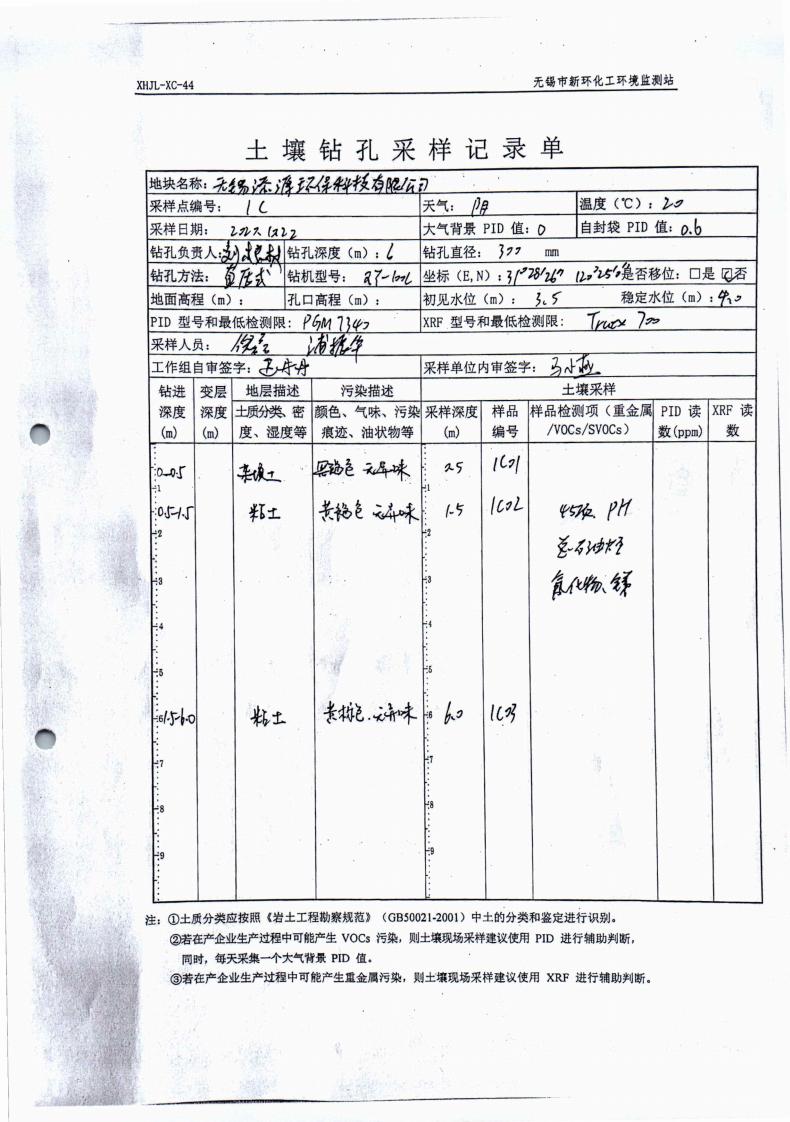 XHJL-XC-44 无锡市新环化工环境监测站
土壤钻孔采样记录单
地块名称：无锡添源环保科技有限公司
采样点编号： 1C 天气： 阴 温度（℃）：20
采样日期： 大气背景 PID 值：0 自封袋 PID 值：0.6
钻孔负责人： 钻孔深度（m）：6 钻孔直径： 300 mm
钻孔方法：直压式 钻机型号： QY-100L 坐标（E,N）： 是否移位：□是 ☑否
地面高程（m）： 孔口高程（m）： 初见水位（m）： 3.5 稳定水位（m）：4.0
PID 型号和最低检测限：PGM7340 XRF 型号和最低检测限： Truex 700
采样人员：
工作组自审签字： 采样单位内审签字：
钻进 变层 地层描述 污染描述 土壤采样
深度 深度 土质分类、密 颜色、气味、污染 采样深度 样品 样品检测项（重金属 PID 读 XRF 读
(m) (m) 度、湿度等 痕迹、油状物等 (m) 编号 /VOCs/SVOCs） 数(ppm) 数
0-0.5 杂填土 黑褐色 无异味 0.5 1C01
1 1
0.5-1.5 粘土 黄褐色 无异味 1.5 1C02 45项、PH
2 2
总石油烃
3 3
氰化物、锑
4 4
5 5
6 1.5-6.0 粘土 黄棕色、无异味 6 6.0 1C03
7 7
8 8
9 9
注：①土质分类应按照《岩土工程勘察规范》（GB50021-2001）中土的分类和鉴定进行识别。
②若在产企业生产过程中可能产生 VOCs 污染，则土壤现场采样建议使用 PID 进行辅助判断，
同时，每天采集一个大气背景 PID 值。
③若在产企业生产过程中可能产生重金属污染，则土壤现场采样建议使用 XRF 进行辅助判断。